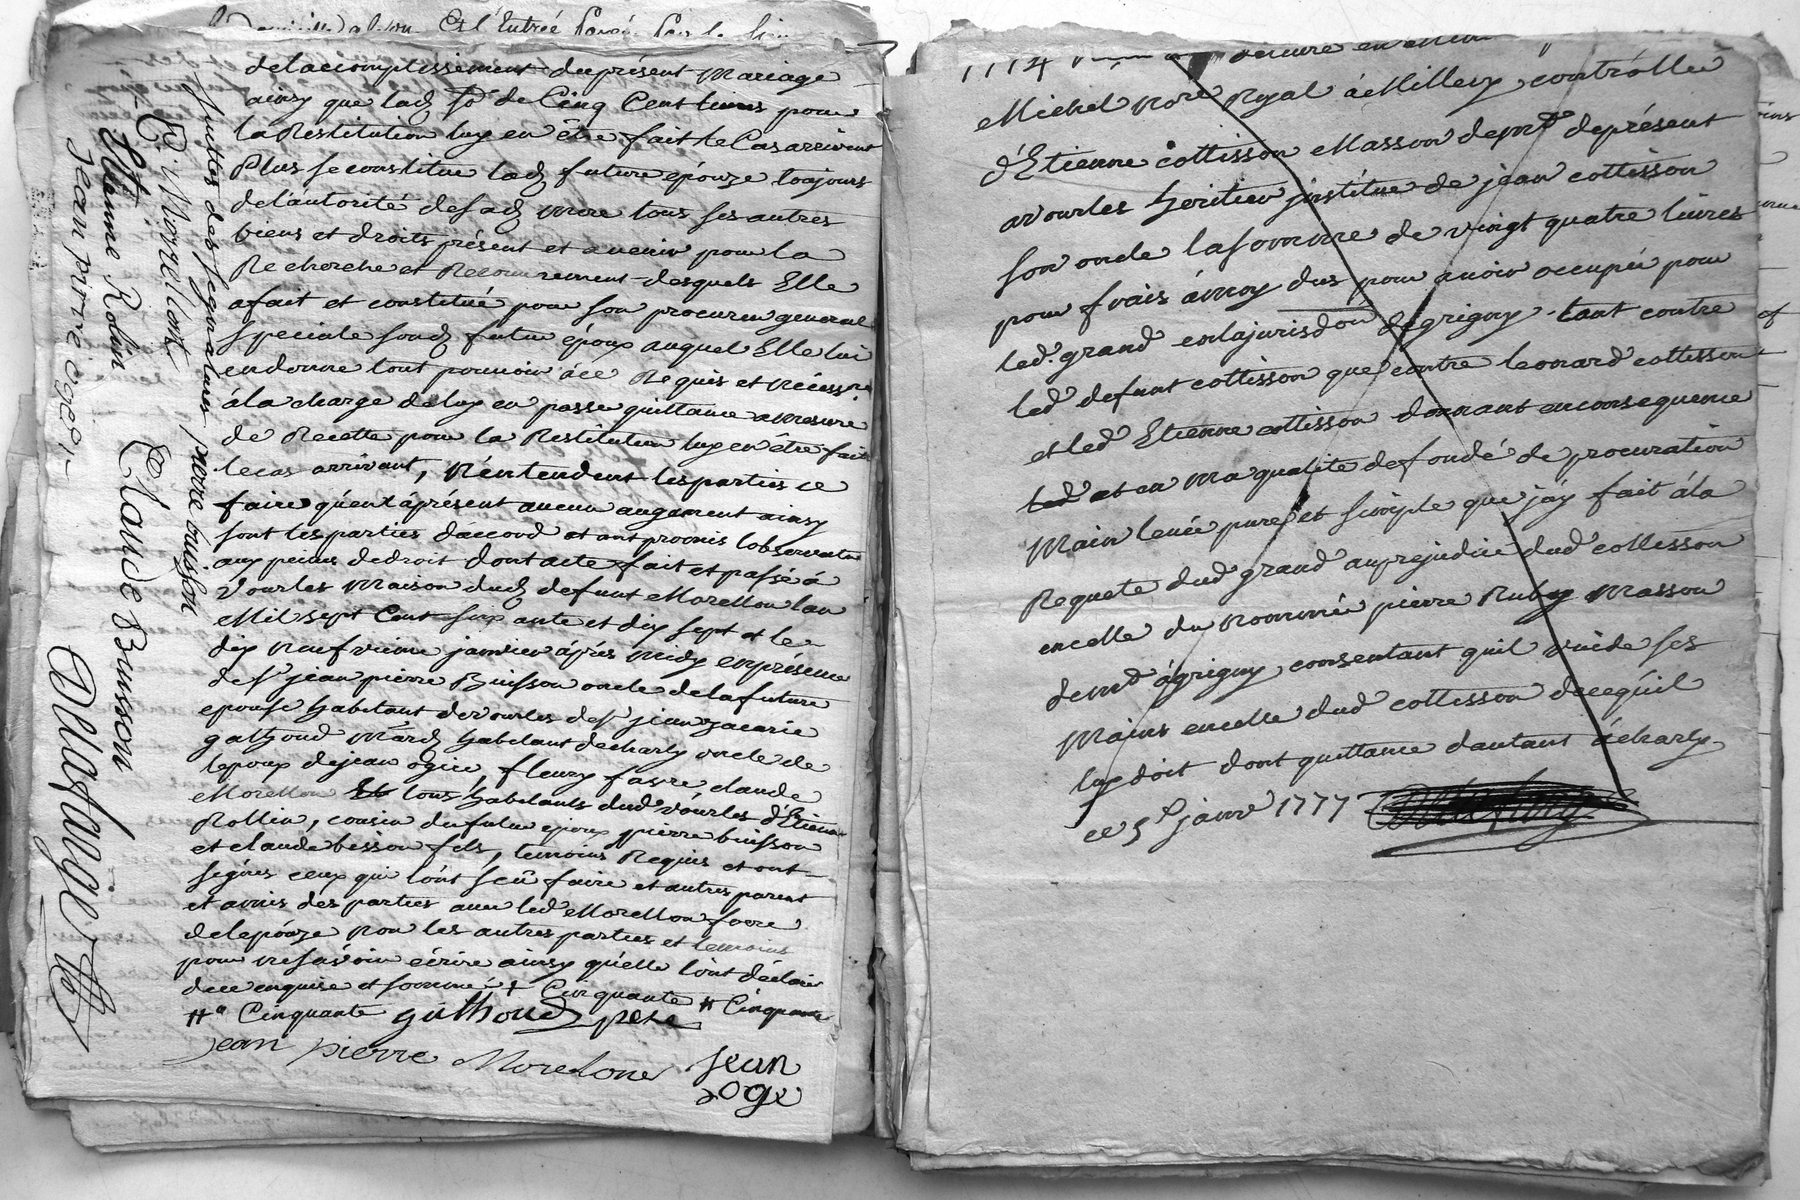 Est l'Entrée
delaccomplissement du présent Mariage
ainsy que lad. So.e de Cinq Cent livres pour
la Restitution luy en être fait le Cas arrivant
Plus se constitue lad. future épouze toujours
de l'autorité de sad. mere tous ses autres
biens et droits présent et avenir pour la
Recherche et Recouvrement desquels Elle
a fait et constitué pour son procureur general
speciale sond. futur époux auquel Elle lui
en donne tout pouvoir à ce Requis et nécess.re
à la charge de luy en passe quittance a mesure
de Recette pour la Restitution luy en être fait
le cas arrivant, N'entendent les parties ce
faire quent àprésent aucun augament ainsy
sont les parties d'accord et ont promis l'observation
aux peines de droit dont acte fait et passé à
Vourles Maison dud. defunt Morellon lan
Mil sept Cent soixante et dix sept et le
dix neufvieme janvier après midy en présence
de S.r jean pierre Buisson oncle de la future
epouse habitant de vourles de S.r jean zacarie
gathoud M.and habitant de charly oncle de
lepoux de jean ogier, fleury favre, claude
Morellon tous habitants dud vourles d'Etienne
Rollin, cousin du futur epoux pierre buisson
et claude besson fils, temoins Requis et ont
signés ceux qui l'ont sçu faire et autres parent
et amis des parties avec led Morellon frere
de lepouze non les autres parties et temoins
pour ne savoir écrire ainsy qu'elle l'ont déclaré
de ce enquise et sommé + Cinquante # Cinquante
#a Cinquante guthoud pere
jean pierre Morelone jean
oge
suittes des segnatures pierre buisson
C. Morellont
Etienne Robin Claude Buisson
jean pierre oger
1774
Michel nore Royal à Millery, contrôlle
d'Etienne Cottisson Masson dem.t de présent
a Vourles heritier institué de jean cottisson
son oncle la somme de vingt quatre livres
pour frais à moy dus pour avoir occupée pour
led. grand en la jurisdon de grigny tant contre
led defunt cottisson que contre leonard cottisson
et led Etienne cottisson donnant en consequence
led et en ma qualité de fondé de procuration
Main levée pure et simple que j'ay fait à la
Requete dud grand au prejudice dud cottisson
en celle du nommé pierre Ruby Masson
dem.t à grigny, consentant quil vuide ses
Mains en celle dud cottisson de cequil
luy doit dont quittance d'autant à charly
ce 5.e janv.r 1777